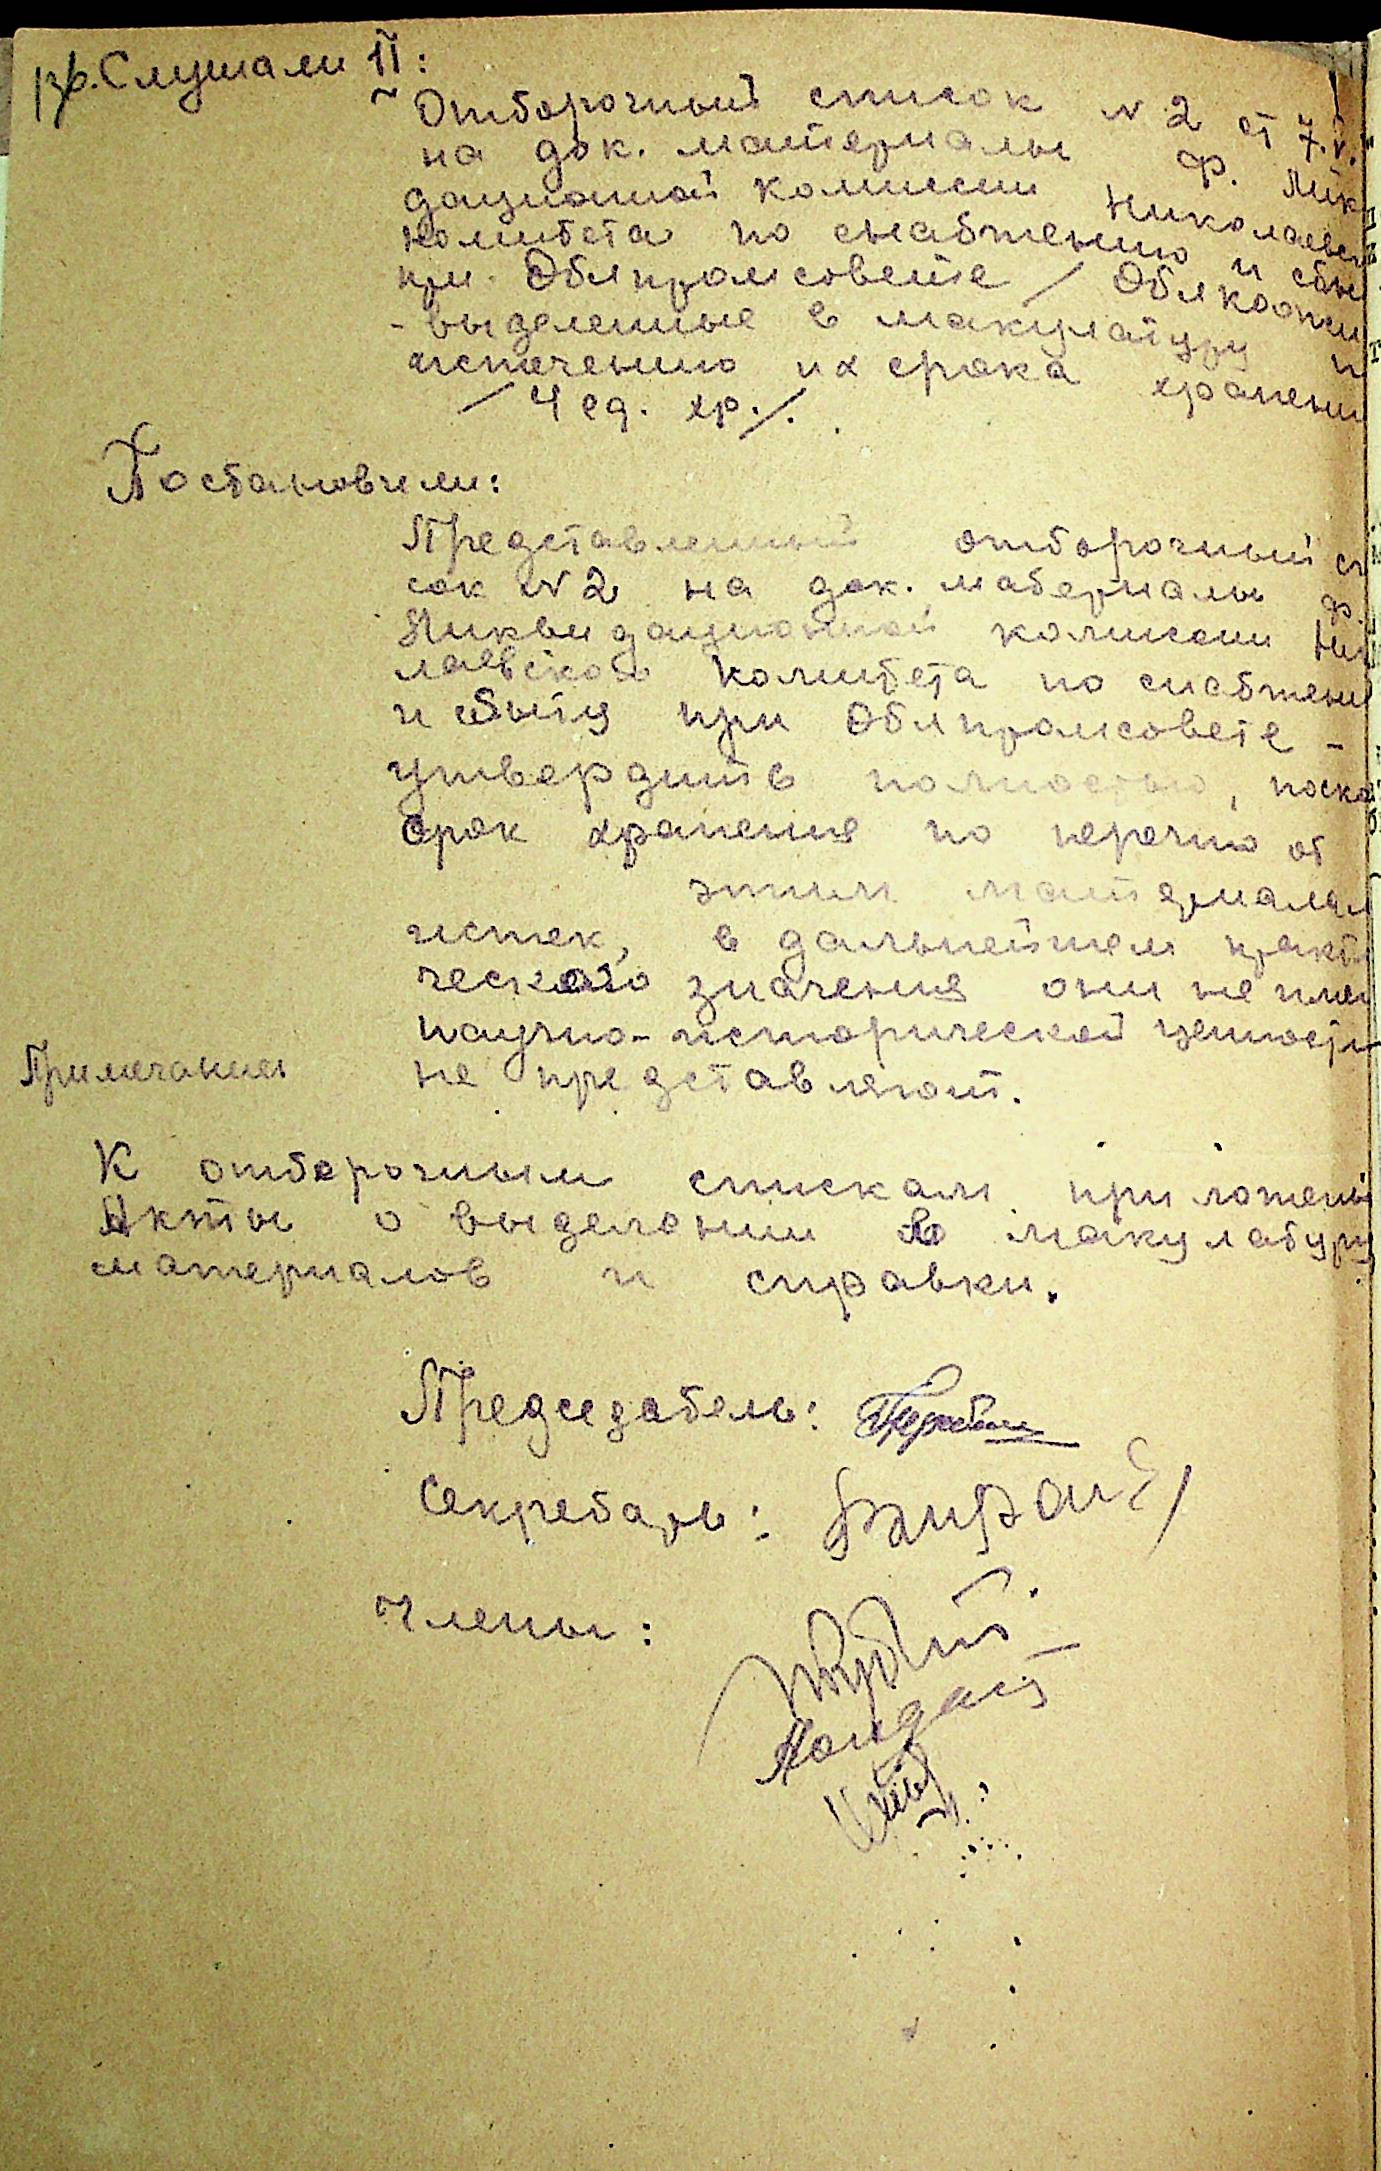 Слушали II:
Отборочный список N 2 от 7.V.
на док. материалы ф. Лик
дационной комиссии Николаевск
комитета по снабжению и сбы
при Облпромсовете / Облкоопи
- выделенные в макулатуру п
истечению их срока хранени
/ 4 ед. хр./.
Постановили:
Представленный отборочный сп
сок N 2 на док. материалы ф.
Ликвидационной комиссии Ни
лаевского комитета по снабжени
и сбыту при Облпромсовете -
утвердить полностью, поско
срок хранения по перечню от
этим материалам
истек, в дальнейшем практи
ческого значения они не име
научно-исторической ценности
Примечание:
не представляют.
К отборочным спискам приложены
Акты о выделении в макулатуру
материалов и справки.
Председатель:
Секретарь:
Члены: